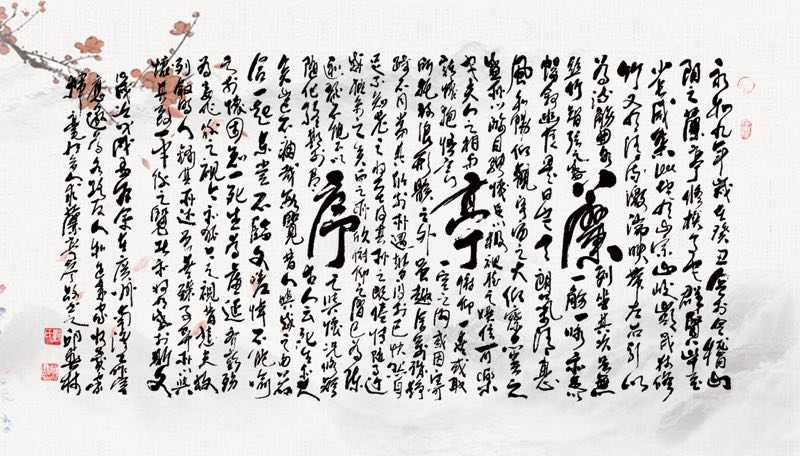 永和九年歲在癸丑會於會稽山
陰之蘭亭修禊事也群賢畢至
少長咸集此地有崇山峻嶺茂林修
竹又有清流激湍映帶左右引以
為流觴曲水列坐其次雖無
絲竹管弦之盛一觴一詠亦足以
暢敘幽情是日也天朗氣清惠
風和暢仰觀宇宙之大俯察品類之
盛所以游目騁懷足以極視聽之娛信可樂
也夫人之相與俯仰一世或取
諸懷抱悟言一室之內或因寄
所託放浪形骸之外雖趣舍萬殊靜
躁不同當其欣於所遇暫得於己快然自
足不知老之將至及其所之既倦情隨事遷
感慨係之矣向之所欣俯仰之間已為陳
跡猶不能不以之興懷況修短
隨化終期於盡古人云死生亦大
矣豈不痛哉每覽昔人興感之由若
合一契未嘗不臨文嗟悼不能喻
之於懷固知一死生為虛誕齊彭殤
為妄作後之視今亦猶今之視昔悲夫故
列敘時人錄其所述雖世殊事異所以興
懷其致一也後之覽者亦將有感於斯文
蘭亭序